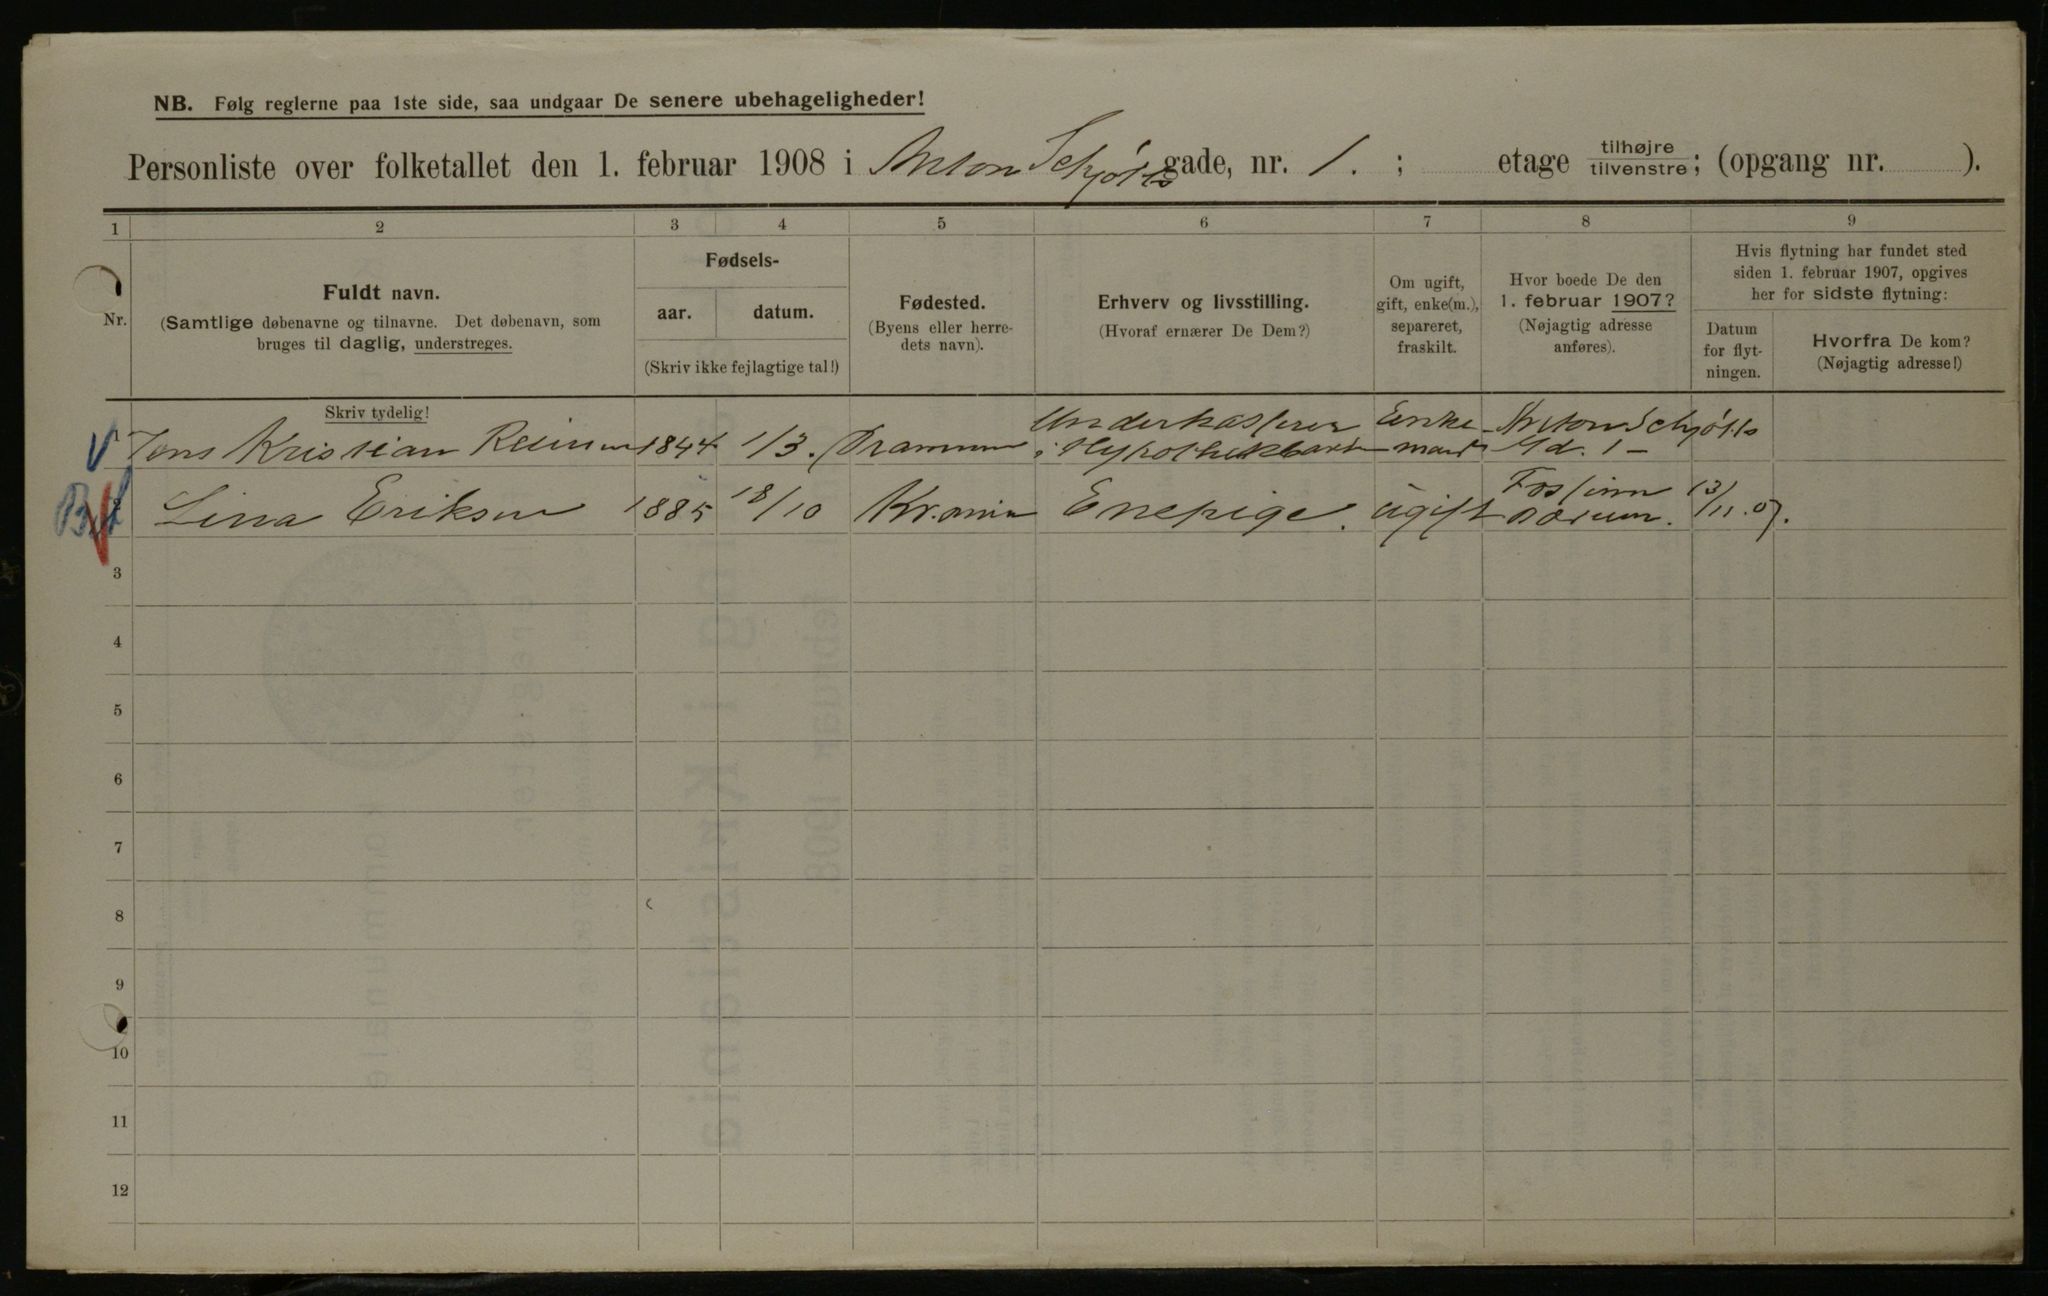 NB. Følg reglerne paa 1ste side, saa undgaar De senere ubehageligheder!
Personliste over folketallet den 1. februar 1908 i Anton Schjøtts gade, nr. 1. ; etage tilhøjre/tilvenstre; (opgang nr. ).
1 2 3 4 5 6 7 8 9
Nr.
Fuldt navn.
(Samtlige døbenavne og tilnavne. Det døbenavn, som
bruges til daglig, understreges.
Skriv tydelig!
Fødsels-
aar. datum.
(Skriv ikke fejlagtige tal!)
Fødested.
(Byens eller herre-
dets navn).
Erhverv og livsstilling.
(Hvoraf ernærer De Dem?)
Om ugift,
gift, enke(m.),
separeret,
fraskilt.
Hvor boede De den
1. februar 1907?
(Nøjagtig adresse
anføres).
Hvis flytning har fundet sted
siden 1. februar 1907, opgives
her for sidste flytning:
Datum
for flyt-
ningen.
Hvorfra De kom?
(Nøjagtig adresse!)
Jens Kristian 1844 1/3. Drammen Underkasserer Enke- Anton Schjøtts
i Hypothekbank mand Gd. 1 –
Lina Eriksen 1885 18/10 Kr.ania Enepige. ugift 13/11.07.
Bærum.
3
4
5
6
7
8
9
10
11
12